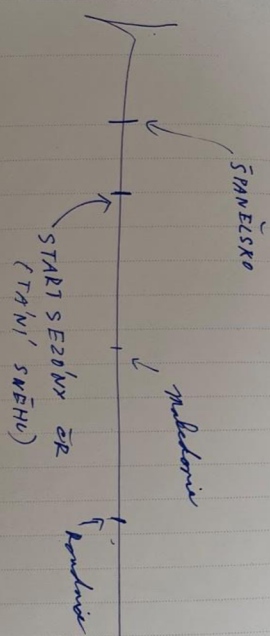 ŠPANĚLSKO
START SEZÓNY ČR
(TÁNÍ SNĚHU)
Makedonie